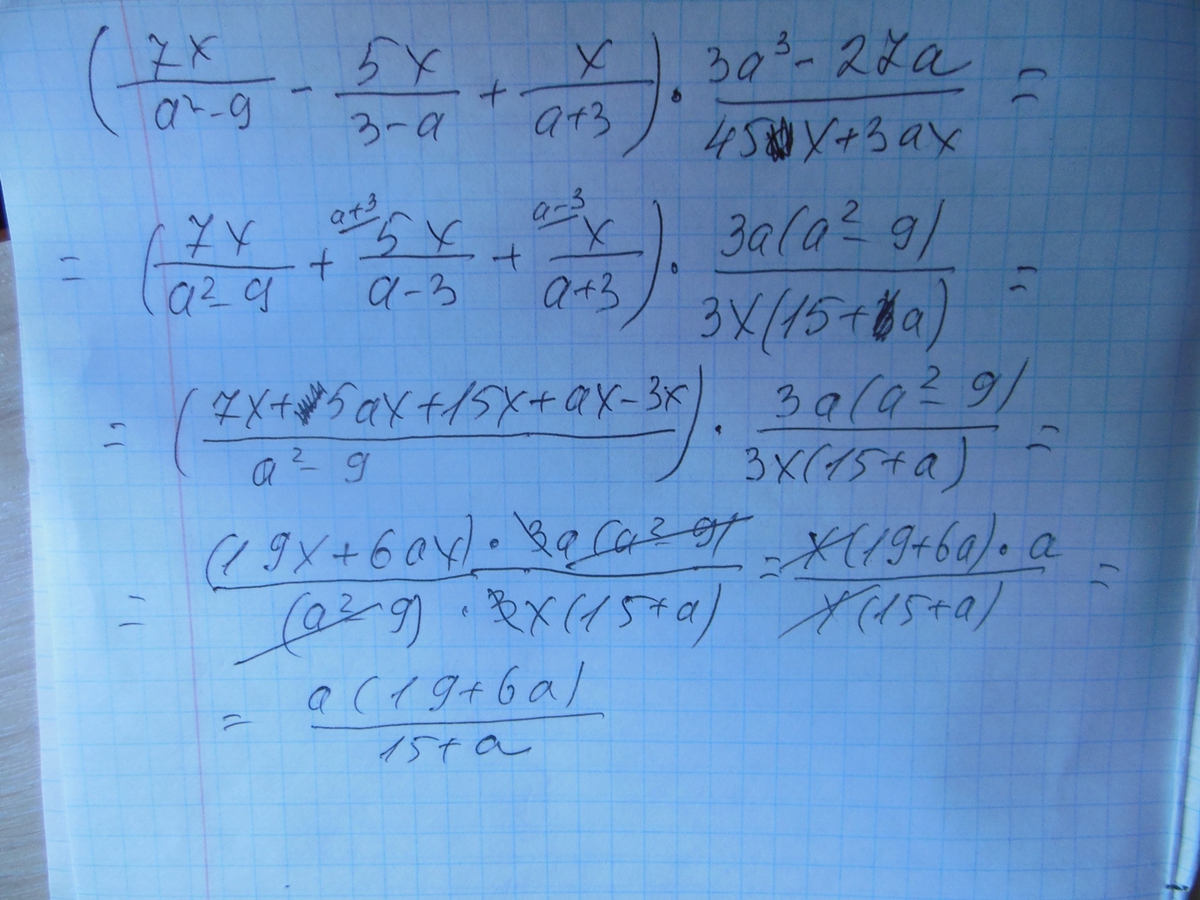 (7x/(a²-9) - 5x/(3-a) + x/(a+3)) · (3a³-27a)/(45x+3ax) =
= (7x/(a²-9) + a+3 5x/(a-3) + a-3 x/(a+3)) · 3a(a²-9)/3x(15+a) =
= ((7x+5ax+15x+ax-3x)/(a²-9)) · 3a(a²-9)/3x(15+a) =
= (19x+6ax)·3a(a²-9)/(a²-9)·3x(15+a) = x(19+6a)·a/x(15+a) =
= a(19+6a)/15+a